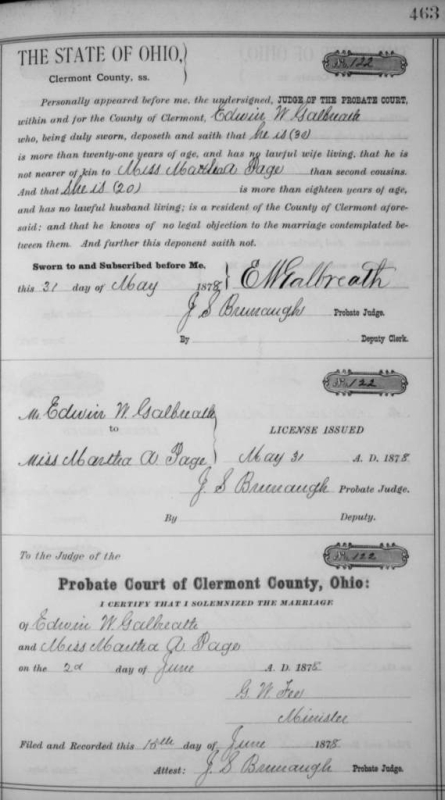 463
THE STATE OF OHIO,
No. 122
Clermont County, ss.
Personally appeared before me, the undersigned, JUDGE OF THE PROBATE COURT,
within and for the County of Clermont, Edwin W Galbreath
who, being duly sworn, deposeth and saith that he is (30)
is more than twenty-one years of age, and has no lawful wife living, that he is
not nearer of kin to Miss Martha A Page than second cousins.
And that She is (20) is more than eighteen years of age,
and has no lawful husband living; is a resident of the County of Clermont afore-
said; and that he knows of no legal objection to the marriage contemplated be-
tween them. And further this deponent saith not.
Sworn to and Subscribed before Me,
this 31 day of May 1878 E W Galbreath
J S Brunaugh Probate Judge.
By Deputy Clerk.
No. 122
Mr Edwin W Galbreath
to LICENSE ISSUED
Miss Martha A Page May 31 A. D. 1878
J. S Brunaugh Probate Judge.
By Deputy.
To the Judge of the No. 122
Probate Court of Clermont County, Ohio:
I CERTIFY THAT I SOLEMNIZED THE MARRIAGE
Of Edwin W. Galbreath
and Miss Martha A. Page
on the 2d day of June A. D. 1878
G. W. Fee
Minister
Filed and Recorded this 18th day of June 1878
Attest: J. S Brunaugh Probate Judge.